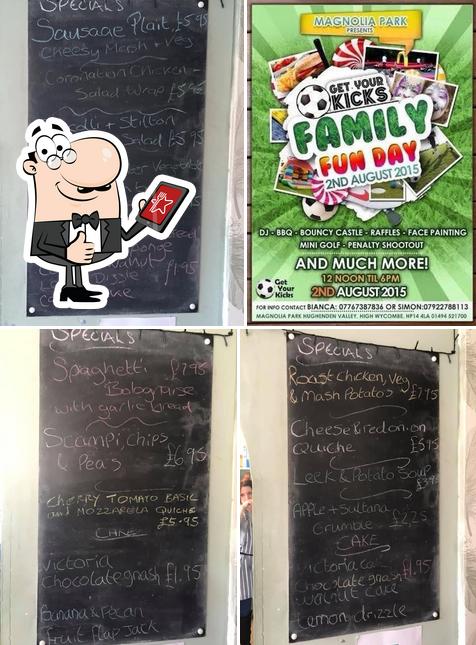 SPECIALS
Sausage Plait, £5.95
Cheesy Mash + Veg
Coronation Chicken
Salad Wrap £5.95
+ Stilton
Salad £5.95
£1.95
MAGNOLIA PARK
PRESENTS
GET YOUR
KICKS
FAMILY
FUN DAY
2ND AUGUST 2015
DJ - BBQ - BOUNCY CASTLE - RAFFLES - FACE PAINTING
MINI GOLF - PENALTY SHOOTOUT
AND MUCH MORE!
12 NOON TIL 6PM
2ND AUGUST 2015
Get
Your
Kicks
FOR INFO CONTACT BIANCA: 07767387836 OR SIMON:07922788113
MAGNOLIA PARK HUGHENDEN VALLEY, HIGH WYCOMBE, HP14 4LA 01494 521700
SPECIALS
Spaghetti £7.95
Bolognaise
with garlic bread
Scampi, chips
& Peas £6.95
CHERRY TOMATO BASIL
and MOZZARELLA QUICHE
£5.95
CAKE
Victoria
Chocolate gnash £1.95
Banana & Pecan
Fruit Flap Jack
SPECIALS
Roast chicken, Veg
& Mash Potatos £7.95
Cheese & red onion
Quiche £5.95
Leek & Potato Soup
£3.95
Apple + Sultana
Crumble £2.25
CAKE
Victoria £1.95
Chocolate gnash
Walnut Cake
Lemon drizzle